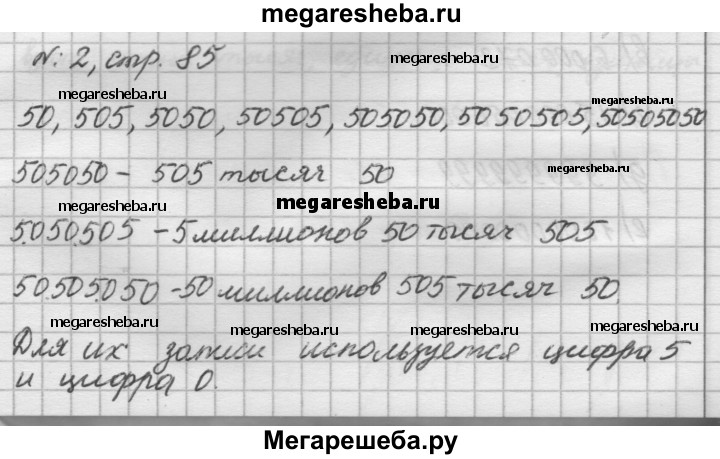 megaresheba.ru
№: 2, стр. 85
megaresheba.ru
megaresheba.ru
megaresheba.ru
50, 505, 5050, 50505, 505050, 5050505, 50505050
505050 - 505 тысяч 50
megaresheba.ru
megaresheba.ru
megaresheba.ru
5.050.505 - 5 миллионов 50 тысяч 505
50.505.050 - 50 миллионов 505 тысяч 50.
megaresheba.ru
megaresheba.ru
megaresheba.ru
megaresheba.ru
Для их записи используется цифра 5
и цифра 0.
Мегарешеба.ру